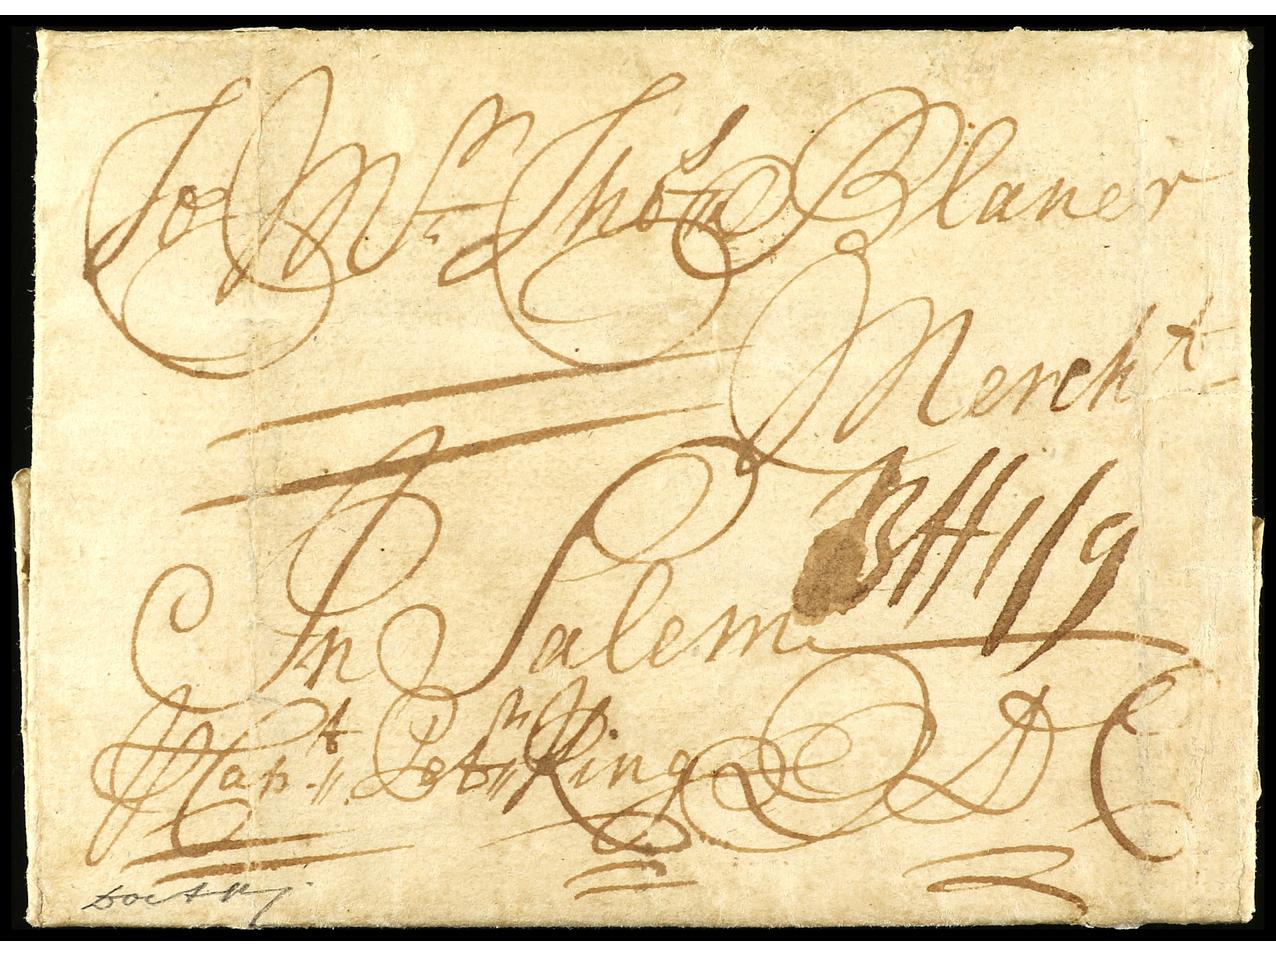 To Mr. Thos Blaner
Mercht
In Salem
119
p Capt. Petr King Q D C